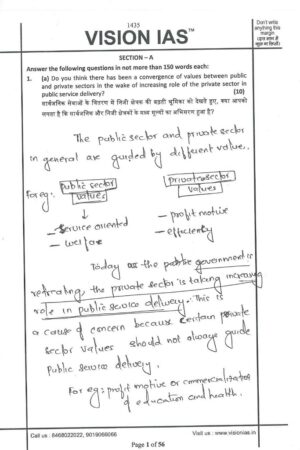 1435
VISION IAS™
Don't write anything this margin
(इस भाग में कुछ ना लिखें)
SECTION – A
Answer the following questions in not more than 150 words each:
1. (a) Do you think there has been a convergence of values between public
and private sectors in the wake of increasing role of the private sector in
public service delivery? (10)
सार्वजनिक सेवाओं के वितरण में निजी क्षेत्रक की बढ़ती भूमिका को देखते हुए, क्या आपको
लगता है कि सार्वजनिक और निजी क्षेत्रकों के मध्य मूल्यों का अभिसरण हुआ है?
The public sector and private sector
in general are guided by different value.
For eg: Public sector values
Private sector values
- Service oriented
- welfare
- profit motive
- efficiency
Today as the public government is
retreating, the private sector is taking increasing
role in public service delivery. This is
a cause of concern because certain private
sector values should not always guide
public service delivery.
For eg: profit motive or commercialization
of education and health.
Call us : 8468022022, 9019066066
Visit us : www.visionias.in
Page 1 of 56